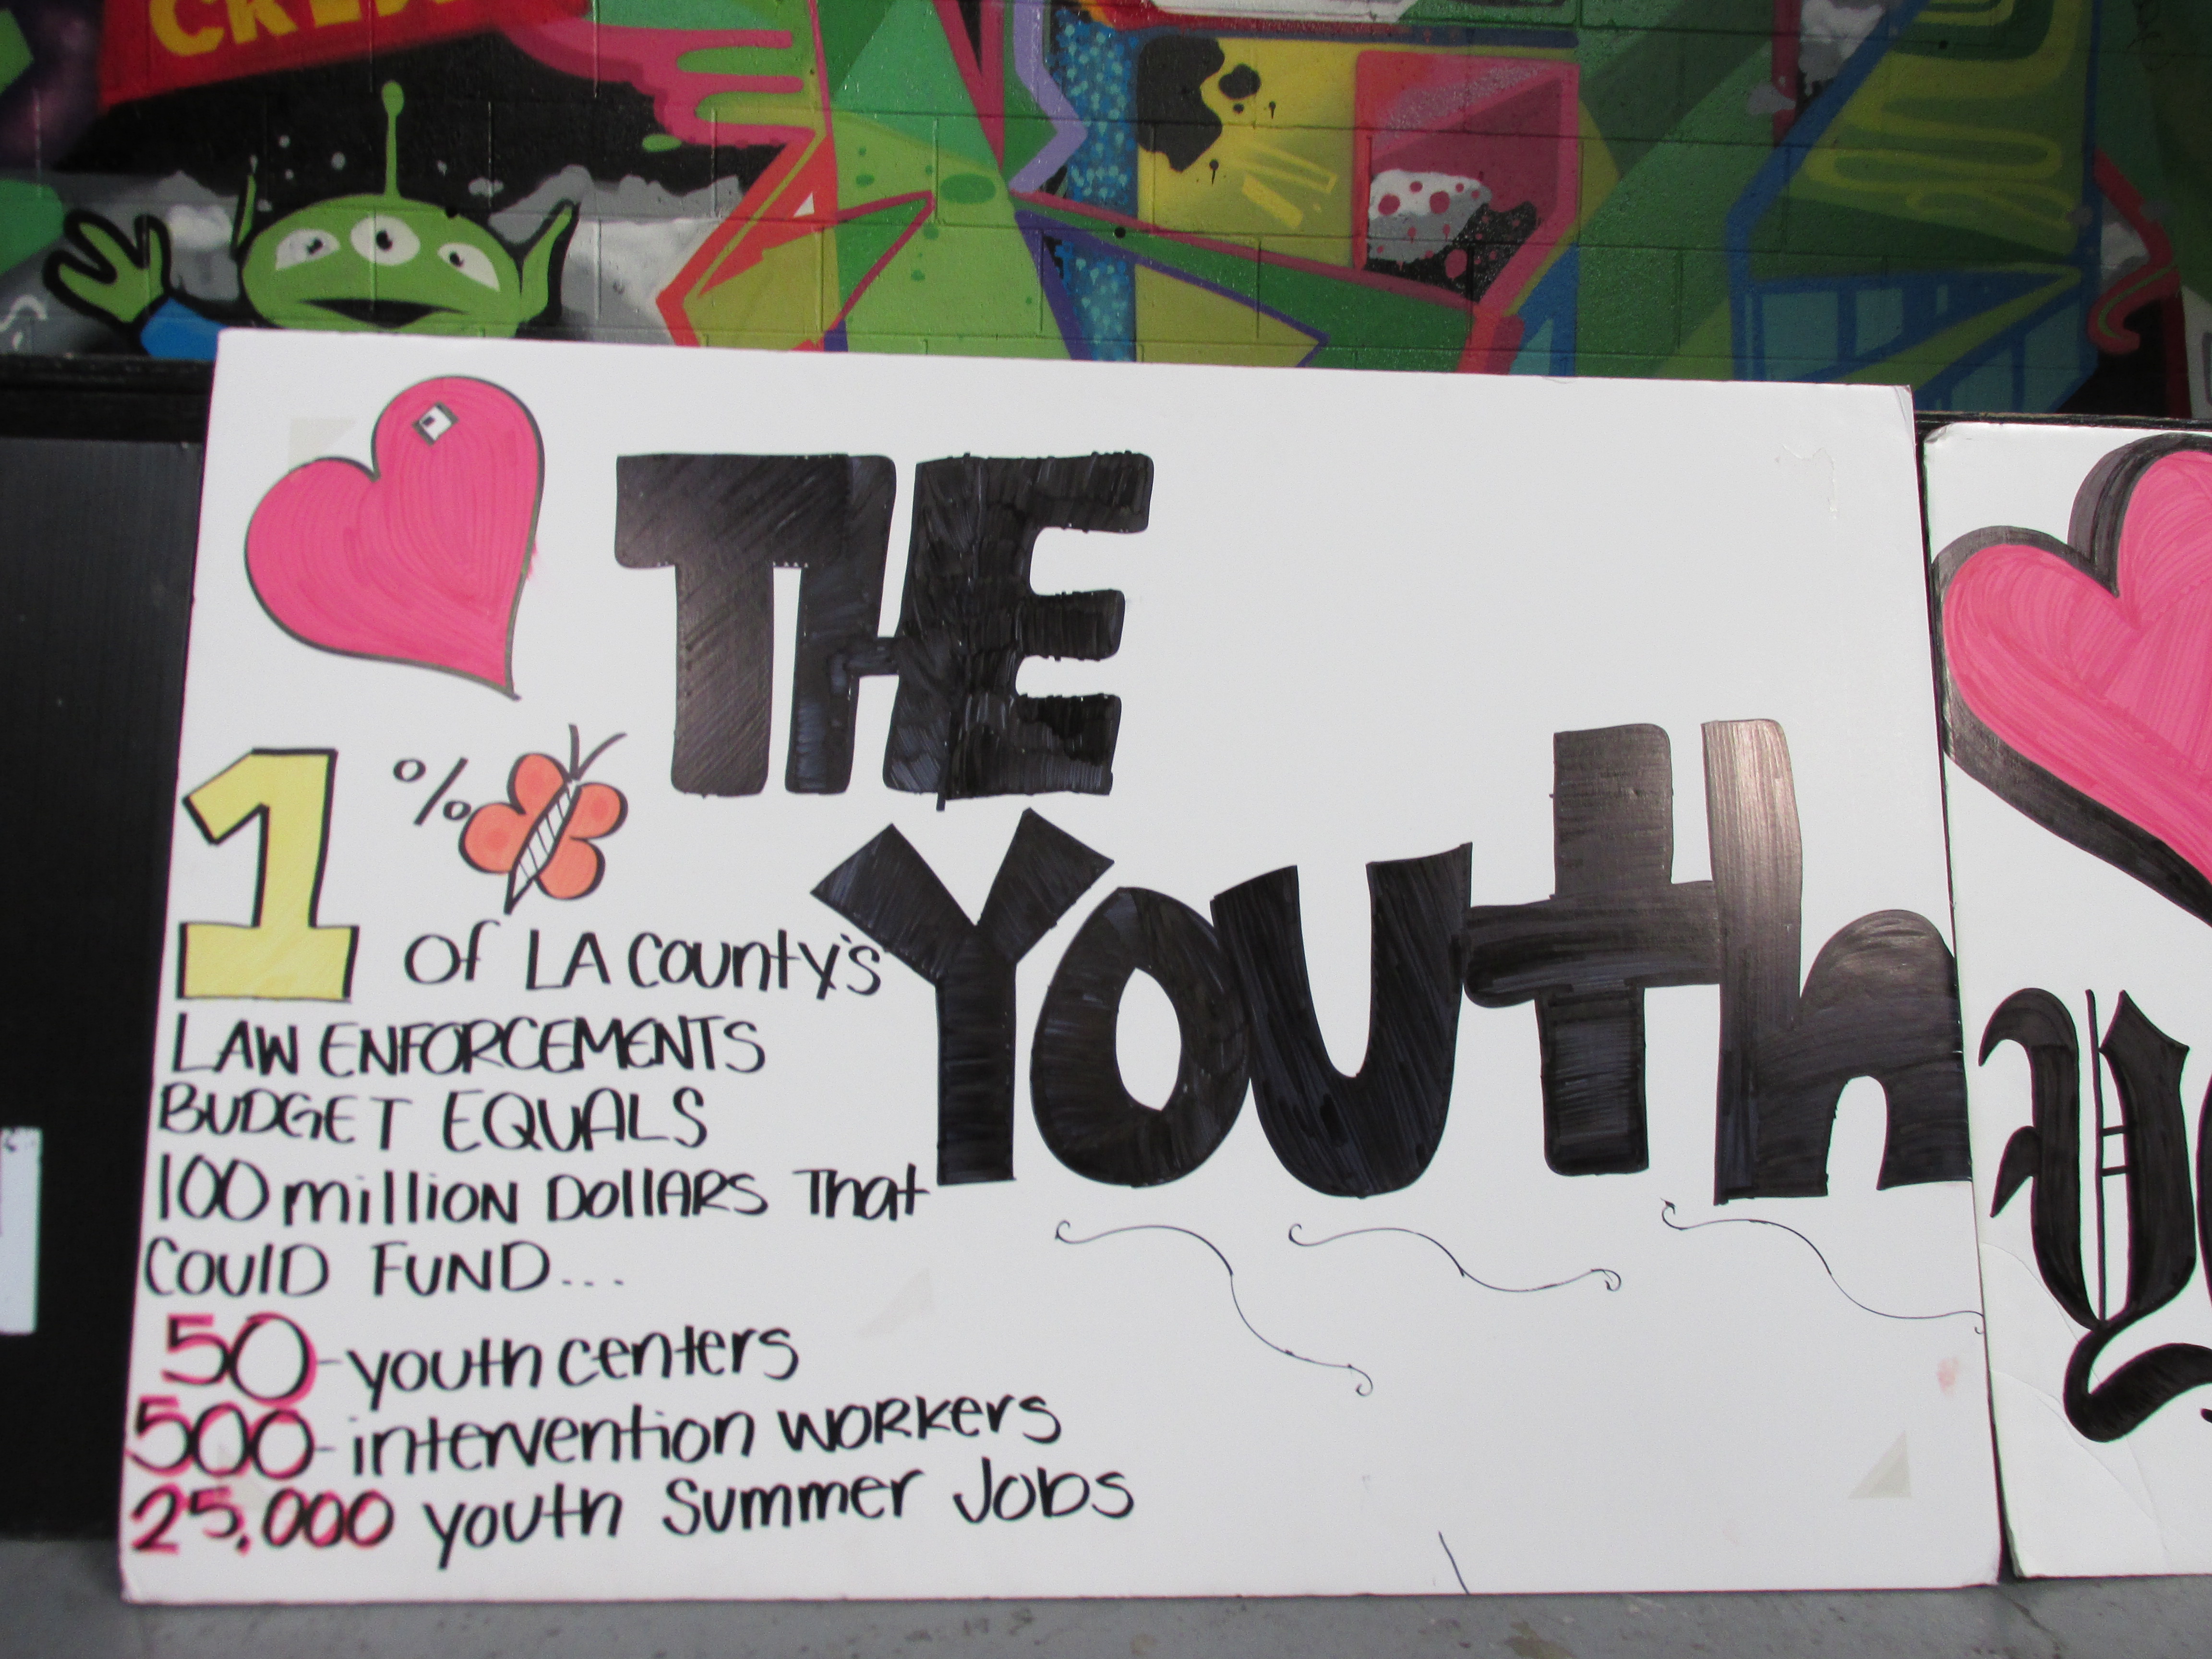 CREW
THE
YOUth
1% of LA County's
LAW ENFORCEMENTS
BUDGET EQUALS
100 million DollARS That
COUlD FUND...
50-youth centers
500-intervention workers
25,000 youth Summer Jobs